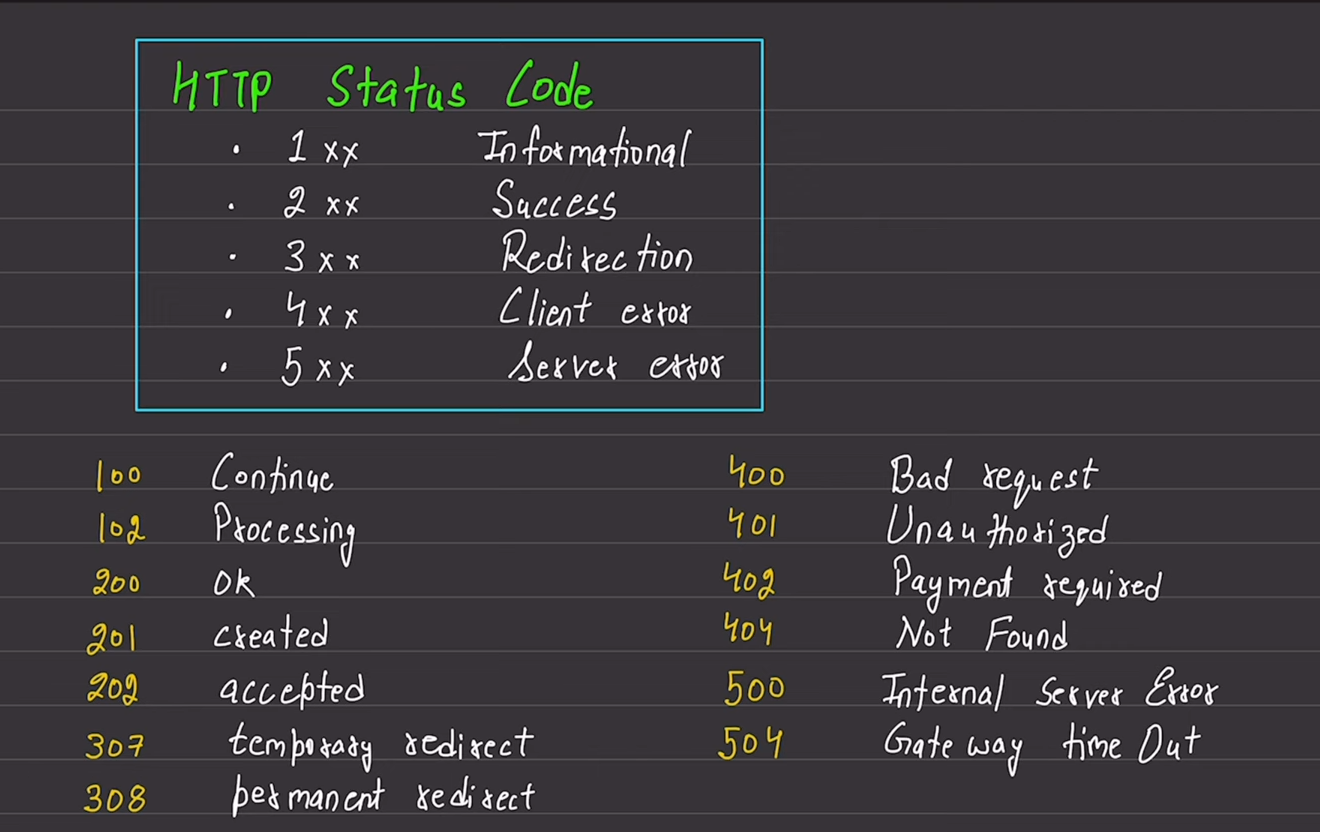 HTTP Status Code
· 1xx Informational
· 2xx Success
· 3xx Redirection
· 4xx Client error
· 5xx Server error
100 Continue
102 Processing
200 Ok
201 created
202 accepted
307 temporary redirect
308 permanent redirect
400 Bad request
401 Unauthorized
402 Payment required
404 Not Found
500 Internal Server Error
504 Gateway time Out